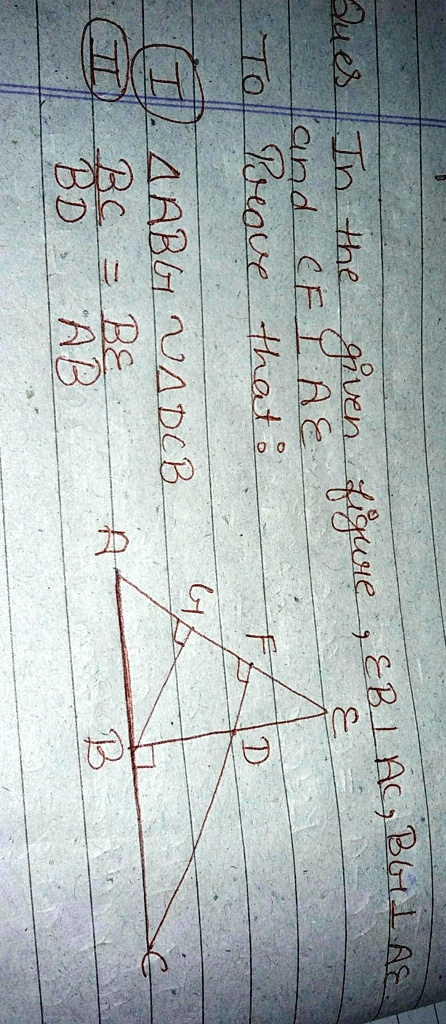 Ques In the given figure, EB ⊥ AC, BG ⊥ AE
and CF ⊥ AE
To Prove that:
I. ΔABG ~ ΔDCB
II BC/BD = BE/AB
E
F
G
D
A
B
C